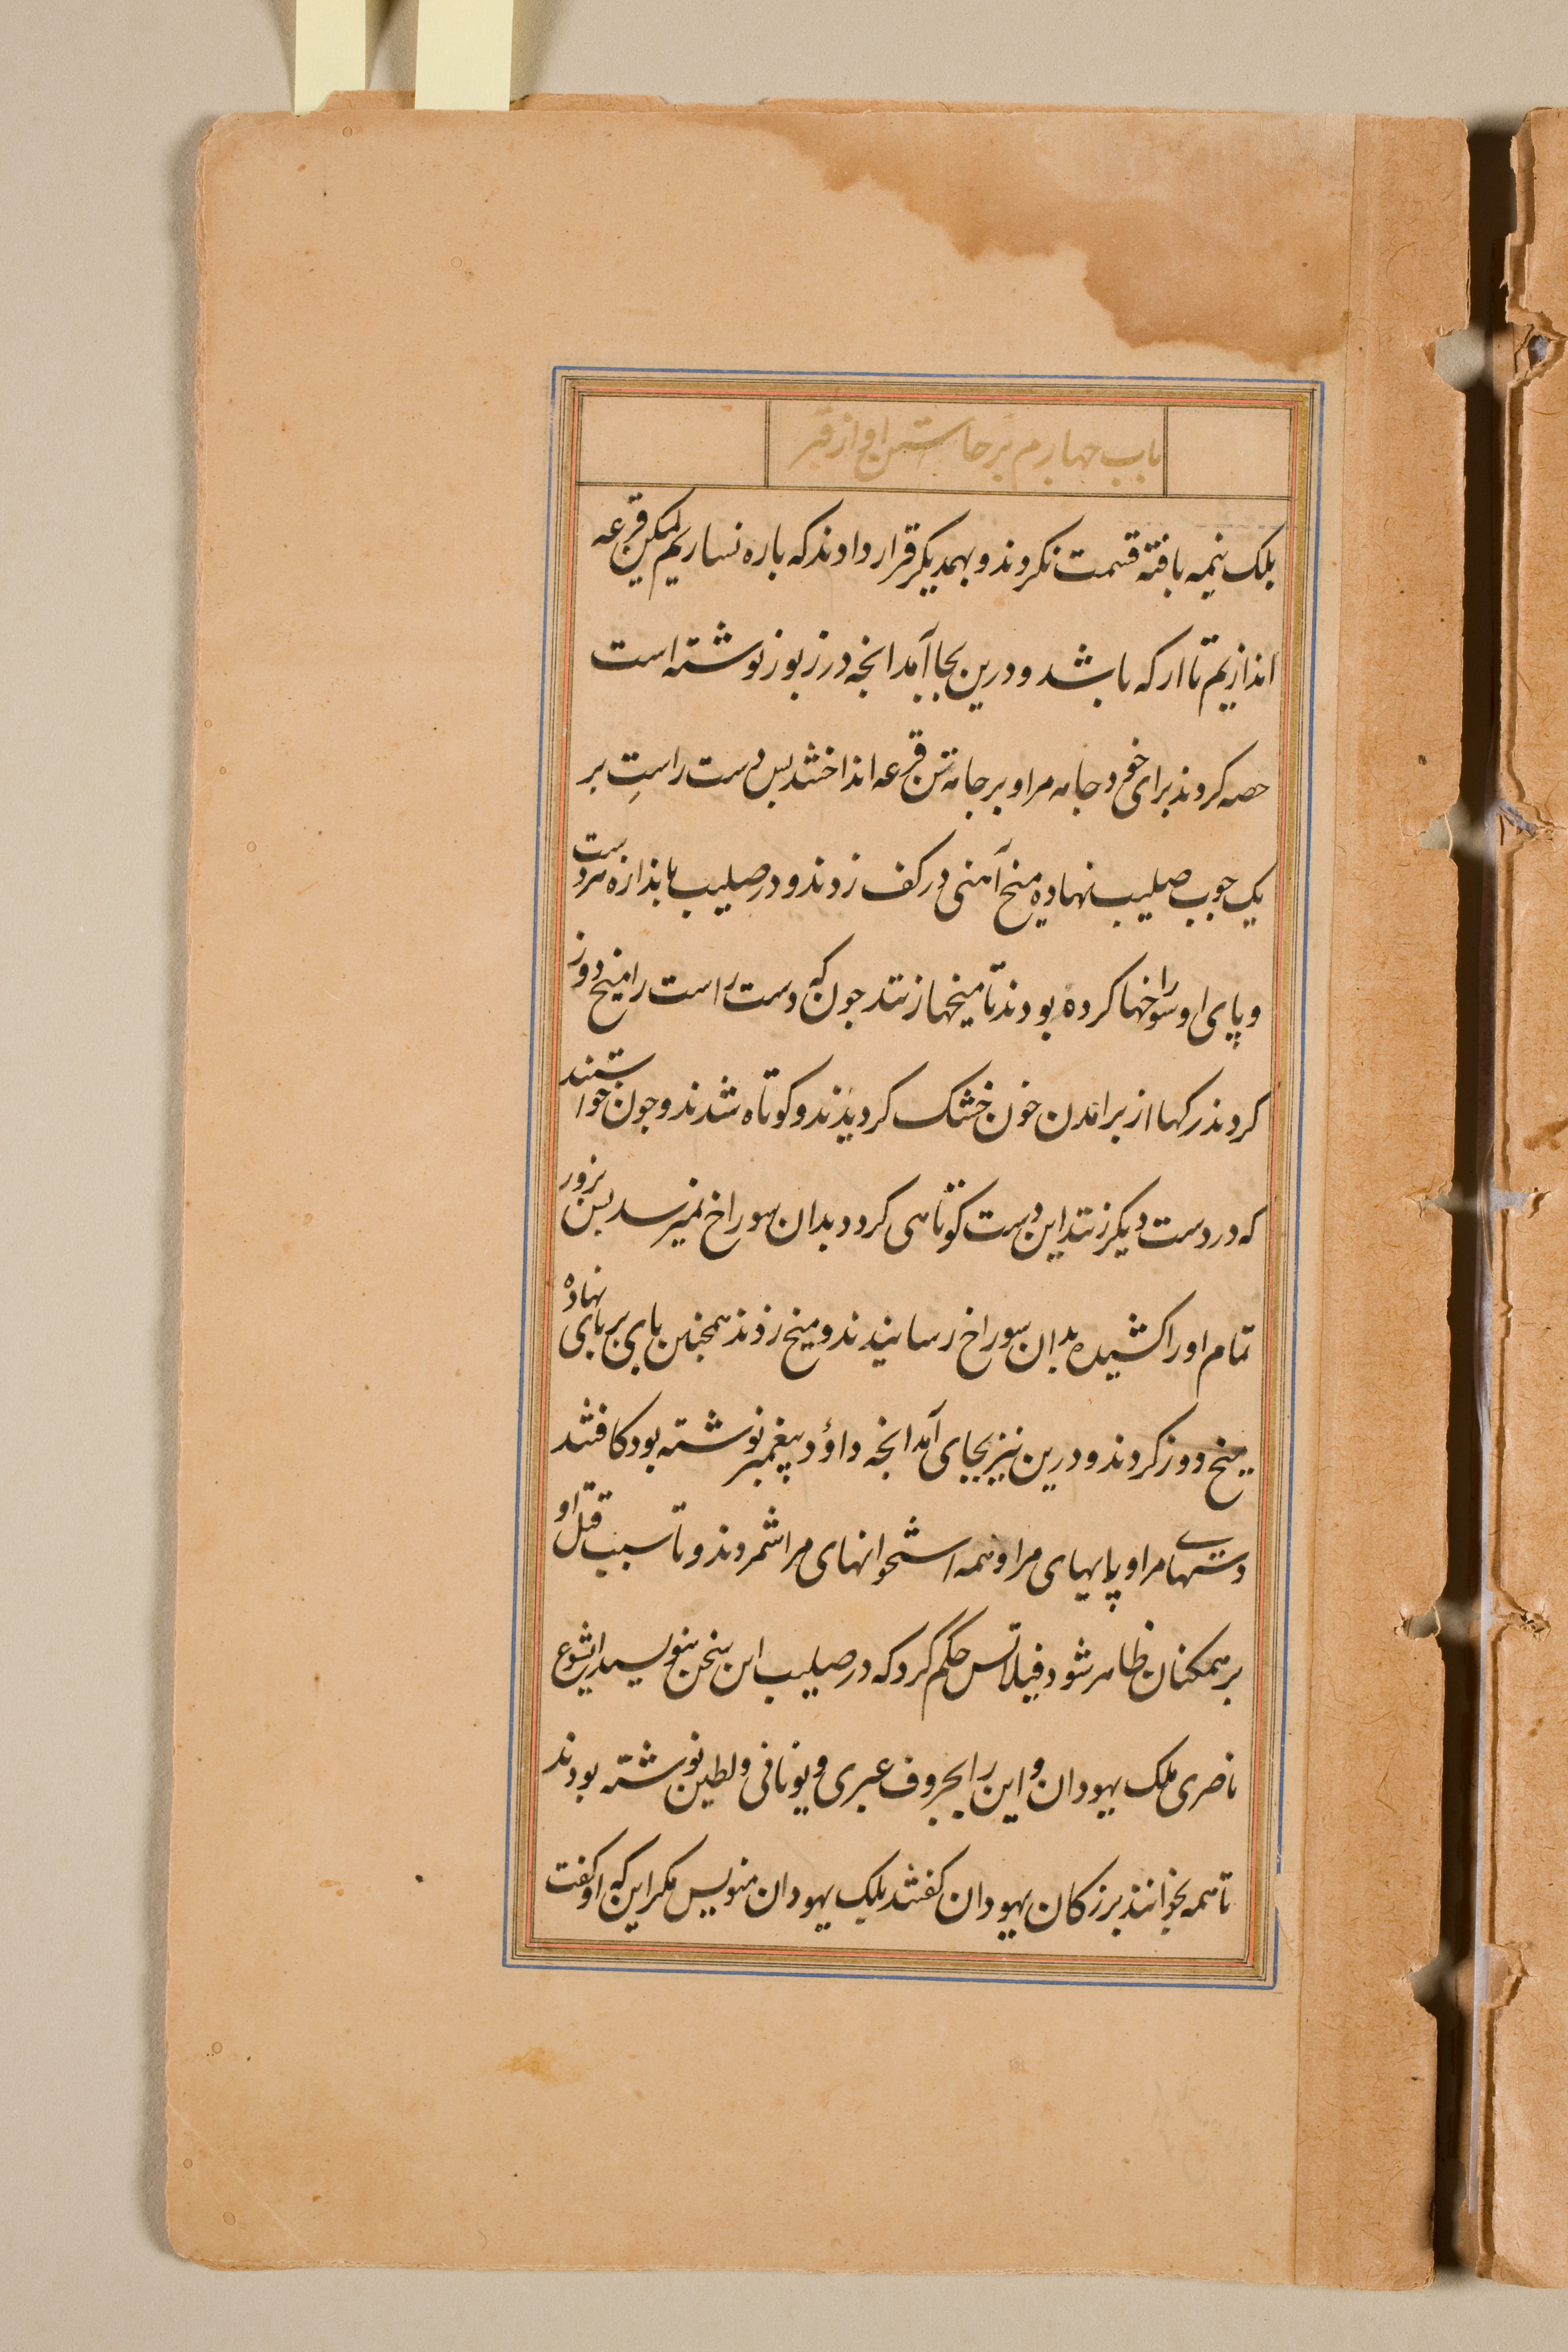 باب چهارم برخاستن او از قبر
بلک نیمه بافته قسمت نکردند و بهمدیکر قرار دادند که باره نسازیم لیکن قرعه
اندازیم تا ار که باشد و درین بجا آمد انچه در زبور نوشته است
حصه کردند برای خود جامه مرا و بر جامه تن قرعه انداختند بس دست راستِ بر
یک جوب صلیب نهاده میخ آهنی در کف زدند و در صلیب باندازه هر دست
و پای او سوراخها کرده بودند تا میخها زنند جون که دست راست را میخ دوز
کردند رکها از برامدن خون خشک کردیدند و کوتاه شدند و جون خواستند
که در دست دیکر زنند این دست کوتاهی کرد و بدان سوراخ نمیرسد بس بزور
تمام او را کشیده بدان سوراخ رسانیدند و میخ زدند همجنین بای بر بای نهاده
میخ دوز کردند و درین نیز بجای آمد انچه داؤد پیغمبر نوشته بود کافتند
دستهای مرا و پایهای مرا و همه استخوانهای مرا شمردند و تا سبب قتل او
بر همکنان ظاهر شود فیلاتس حکم کرد که در صلیب این سخن بنویسید ایشوع
ناصری ملک یهودان و این را بحروف عبری و یونانی و لطین نوشته بودند
تا همه بخوانند بزرکان یهودان کفتند ملک یهودان منویس مکر این که او کفت